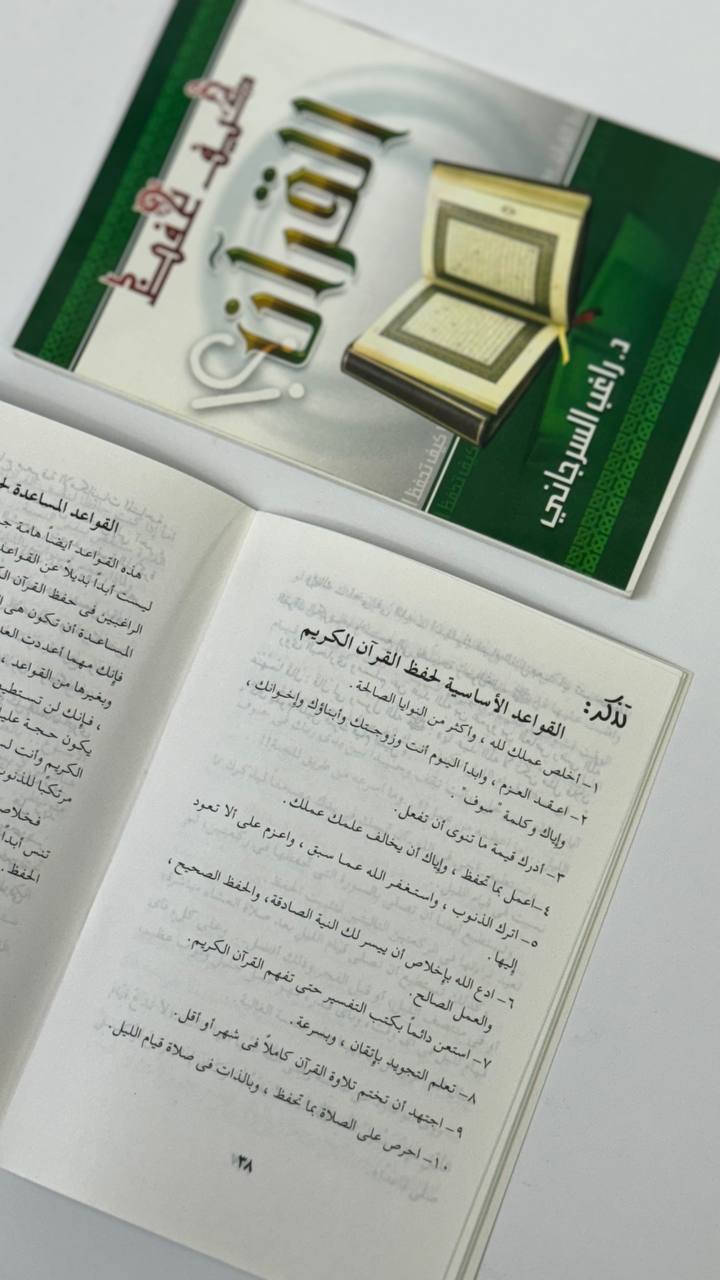 كيف تحفظ
القرآن
؟!
د. راغب السرجاني
كيف تحفظ
القواعد المساعدة
هذه القواعد أيضاً هامة
ليست أبداً بديلاً عن القواعد
الراغبين فى حفظ القرآن
المساعدة أن تكون هى
فإنك مهما أعددت
وبغيرها من القواعد ،
، فإنك لن
يكون حجة
الكريم وأنت
مرتكبًا للذنوب
تنس أبداً
الحفظ .
تذكر:
القواعد الأساسية لحفظ القرآن الكريم
١- أخلص عملك لله ، وأكثر من النوايا الصالحة .
٢- اعقد العزم ، وابدأ اليوم أنت وزوجتك وأبناؤك وإخوانك ،
وإياك وكلمة " سوف " .
٣- أدرك قيمة ما تنوى أن تفعل.
٤- اعمل بما تحفظ ، وإياك أن يخالف علمك عملك .
٥- اترك الذنوب ، واستغفر الله عما سبق ، واعزم على ألا تعود
إليها .
٦- ادع الله بإخلاص أن ييسر لك النية الصادقة، والحفظ الصحيح ،
والعمل الصالح.
٧- استعن دائماً بكتب التفسير حتى تفهم القرآن الكريم.
٨- تعلم التجويد بإتقان ، وبسرعة.
٩- اجتهد أن تختم تلاوة القرآن كاملاً فى شهر أو أقل.
١٠- احرص على الصلاة بما تحفظ ، وبالذات فى صلاة قيام الليل.
٣٨